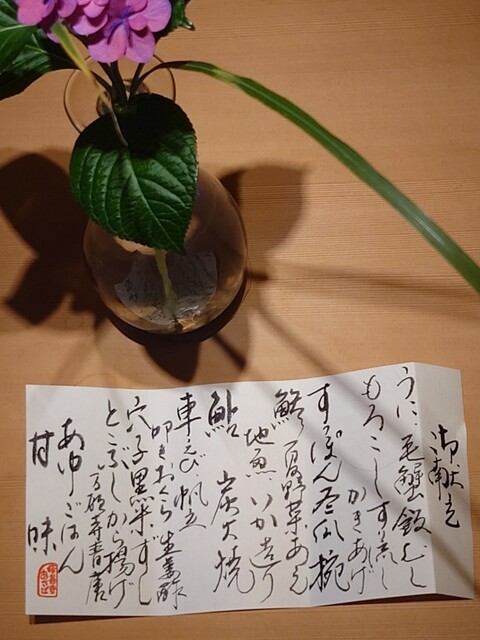 御献立
うに 毛蟹 飯むし
もろこし すり流し
かきあげ
すっぽん 冬瓜 椀
鱧 夏野菜あん
地魚 いか造り
鮎 炭火焼
車えび 帆立
叩きおくら 生姜酢
穴子黒米ずし
とこぶしから揚げ
万願寺青唐
あゆごはん
甘味